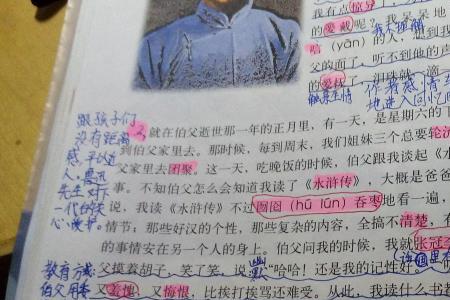 我有点惊
的爱戴呢?我呆呆地
(yān)的人,追到我
父的面了,听不到他的声
的爱
跟孩子们
没有距离
感,平以近
人,鲁迅
先生对下
一代的关
心、爱护。
就在伯父逝世那一年的正月里,有一天,是星期六的下
到伯父家里去。那时候,每到周末,我们姐妹三个总要轮流
父家里去团聚。这一天,吃晚饭的时候,伯父跟我谈起《水
事。不知伯父怎么会知道我读了《水浒传》,大概是爸爸
说,我读《水浒传》不过囫囵(hú lún)吞枣地看一遍,
情节;那些好汉的个性,那些复杂的内容,全搞不清楚,有
的事情安在另一个人的身上。伯父问我的时候,我就张冠李
父摸着胡子,笑了笑,说:“哈哈!还是我的记性好。
幽默
教育方式:
伯父用
又羞愧,又悔恨,比挨打挨骂还难受。从此,我读什么书都